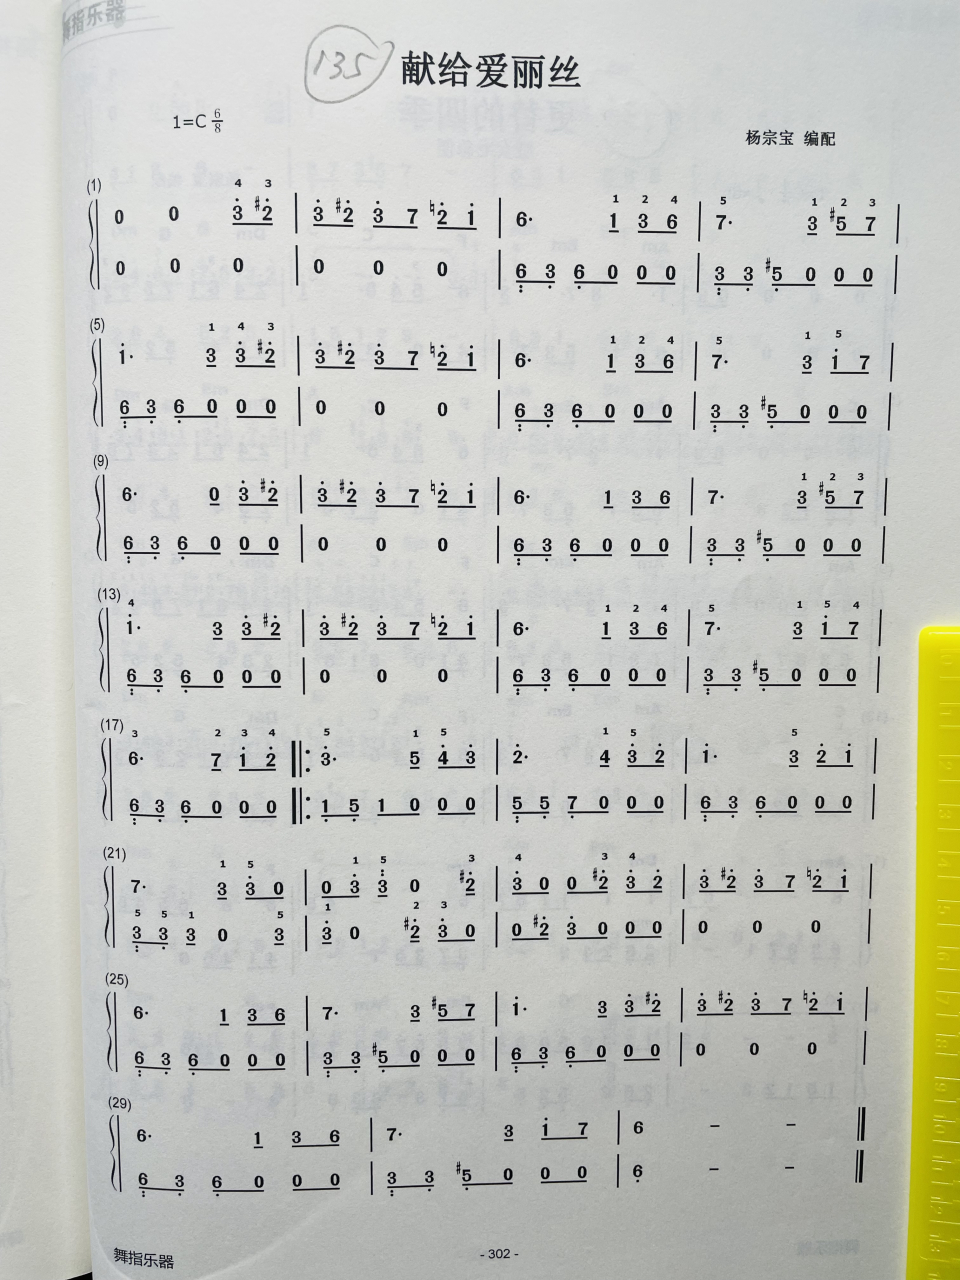 舞指乐器
135
献给爱丽丝
1=C 6/8
杨宗宝 编配
(1)
4 3 1 2 4 5 1 2 3
0 0 3̇ #2̇ | 3̇ #2̇ 3̇ 7 ♮2̇ 1̇ | 6· 1 3 6 | 7· 3 #5 7 |
0 0 0 | 0 0 0 | 6 3 6 0 0 0 | 3 3 #5 0 0 0 |
(5)
1 4 3 1 2 4 5 1 5
1̇· 3 3̇ #2̇ | 3̇ #2̇ 3̇ 7 ♮2̇ 1̇ | 6· 1 3 6 | 7· 3 1̇ 7 |
6 3 6 0 0 0 | 0 0 0 | 6 3 6 0 0 0 | 3 3 #5 0 0 0 |
(9)
1 2 3
6· 0 3̇ #2̇ | 3̇ #2̇ 3̇ 7 ♮2̇ 1̇ | 6· 1 3 6 | 7· 3 #5 7 |
6 3 6 0 0 0 | 0 0 0 | 6 3 6 0 0 0 | 3 3 #5 0 0 0 |
(13)
4 1 2 4 5 1 5 4
1̇· 3 3̇ #2̇ | 3̇ #2̇ 3̇ 7 ♮2̇ 1̇ | 6· 1 3 6 | 7· 3 1̇ 7 |
6 3 6 0 0 0 | 0 0 0 | 6 3 6 0 0 0 | 3 3 #5 0 0 0 |
(17)
3 2 3 4 5 1 5 1 5 5
6· 7 1̇ 2̇ ‖: 3̇· 5 4̇ 3̇ | 2̇· 4 3̇ 2̇ | 1̇· 3 2̇ 1̇ |
6 3 6 0 0 0 ‖: 1 5 1 0 0 0 | 5 5 7 0 0 0 | 6 3 6 0 0 0 |
(21)
1 5 1 5 3 4 3 4
7· 3 3̇ 0 | 0 3̇ 3̇ 0 #2̇ | 3̇ 0 0 #2̇ 3̇ 2̇ | 3̇ #2̇ 3̇ 7 ♮2̇ 1̇ |
5 5 1 5 1 2 3
3 3 3 0 3 | 3̇ 0 #2̇ 3̇ 0 | 0 #2̇ 3̇ 0 0 0 | 0 0 0 |
(25)
6· 1 3 6 | 7· 3 #5 7 | 1̇· 3 3̇ #2̇ | 3̇ #2̇ 3̇ 7 ♮2̇ 1̇ |
6 3 6 0 0 0 | 3 3 #5 0 0 0 | 6 3 6 0 0 0 | 0 0 0 |
(29)
6· 1 3 6 | 7· 3 1̇ 7 | 6 – – ‖
6 3 6 0 0 0 | 3 3 #5 0 0 0 | 6 – – ‖
舞指乐器
- 302 -